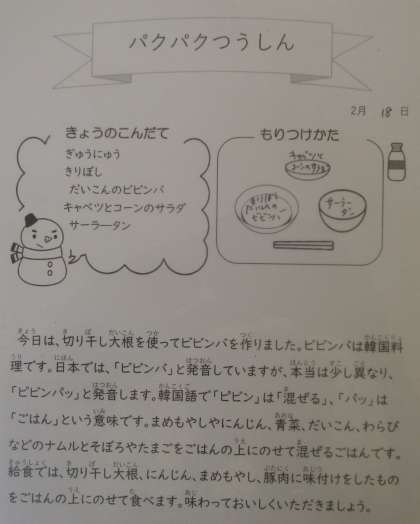 パクパクつうしん
2月 18日
きょうのこんだて
ぎゅうにゅう
きりぼし
だいこんのビビンバ
キャベツとコーンのサラダ
サーラータン
もりつけかた
キャベツと
コーンのサラダ
きりぼし
だいこんの
ビビンバ
サーラー
タン
今日は、切り干し大根を使ってビビンバを作りました。ビビンバは韓国料
理です。日本では、「ビビンバ」と発音していますが、本当は少し異なり、
「ビビンパッ」と発音します。韓国語で「ビビン」は「混ぜる」、「パッ」は
「ごはん」という意味です。まめもやしやにんじん、青菜、だいこん、わらび
などのナムルとそぼろやたまごをごはんの上にのせて混ぜるごはんです。
給食では、切り干し大根、にんじん、まめもやし、豚肉に味付けをしたもの
をごはんの上にのせて食べます。味わっておいしくいただきましょう。